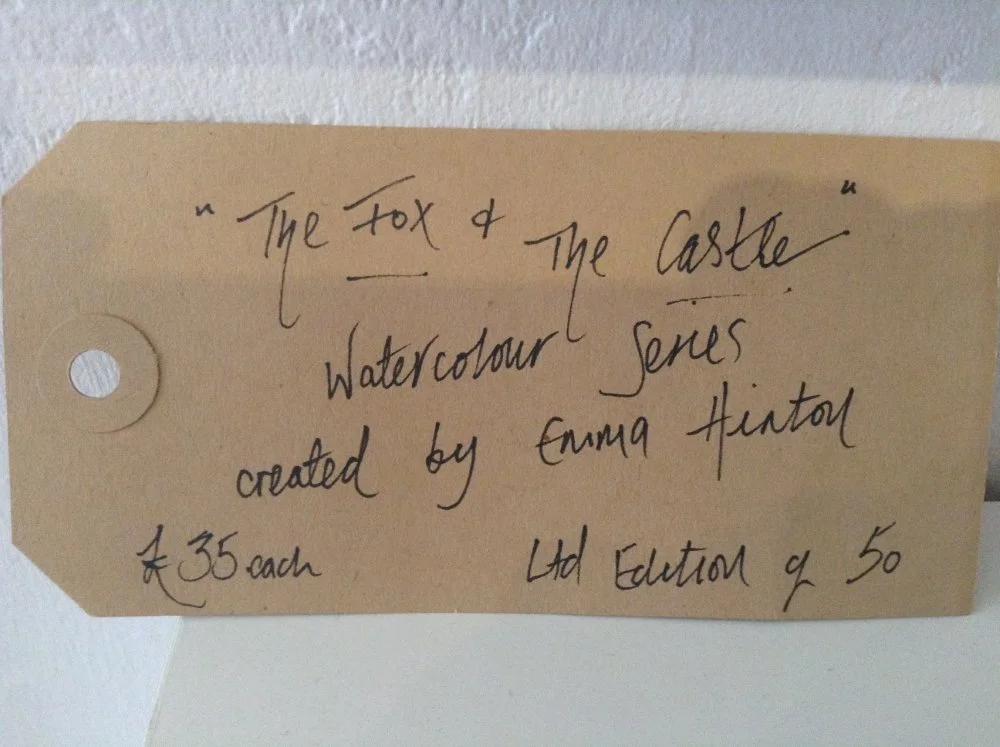 "The Fox & The Castle"
Watercolour Series
created by Emma Hinton
£35 each Ltd Edition of 50